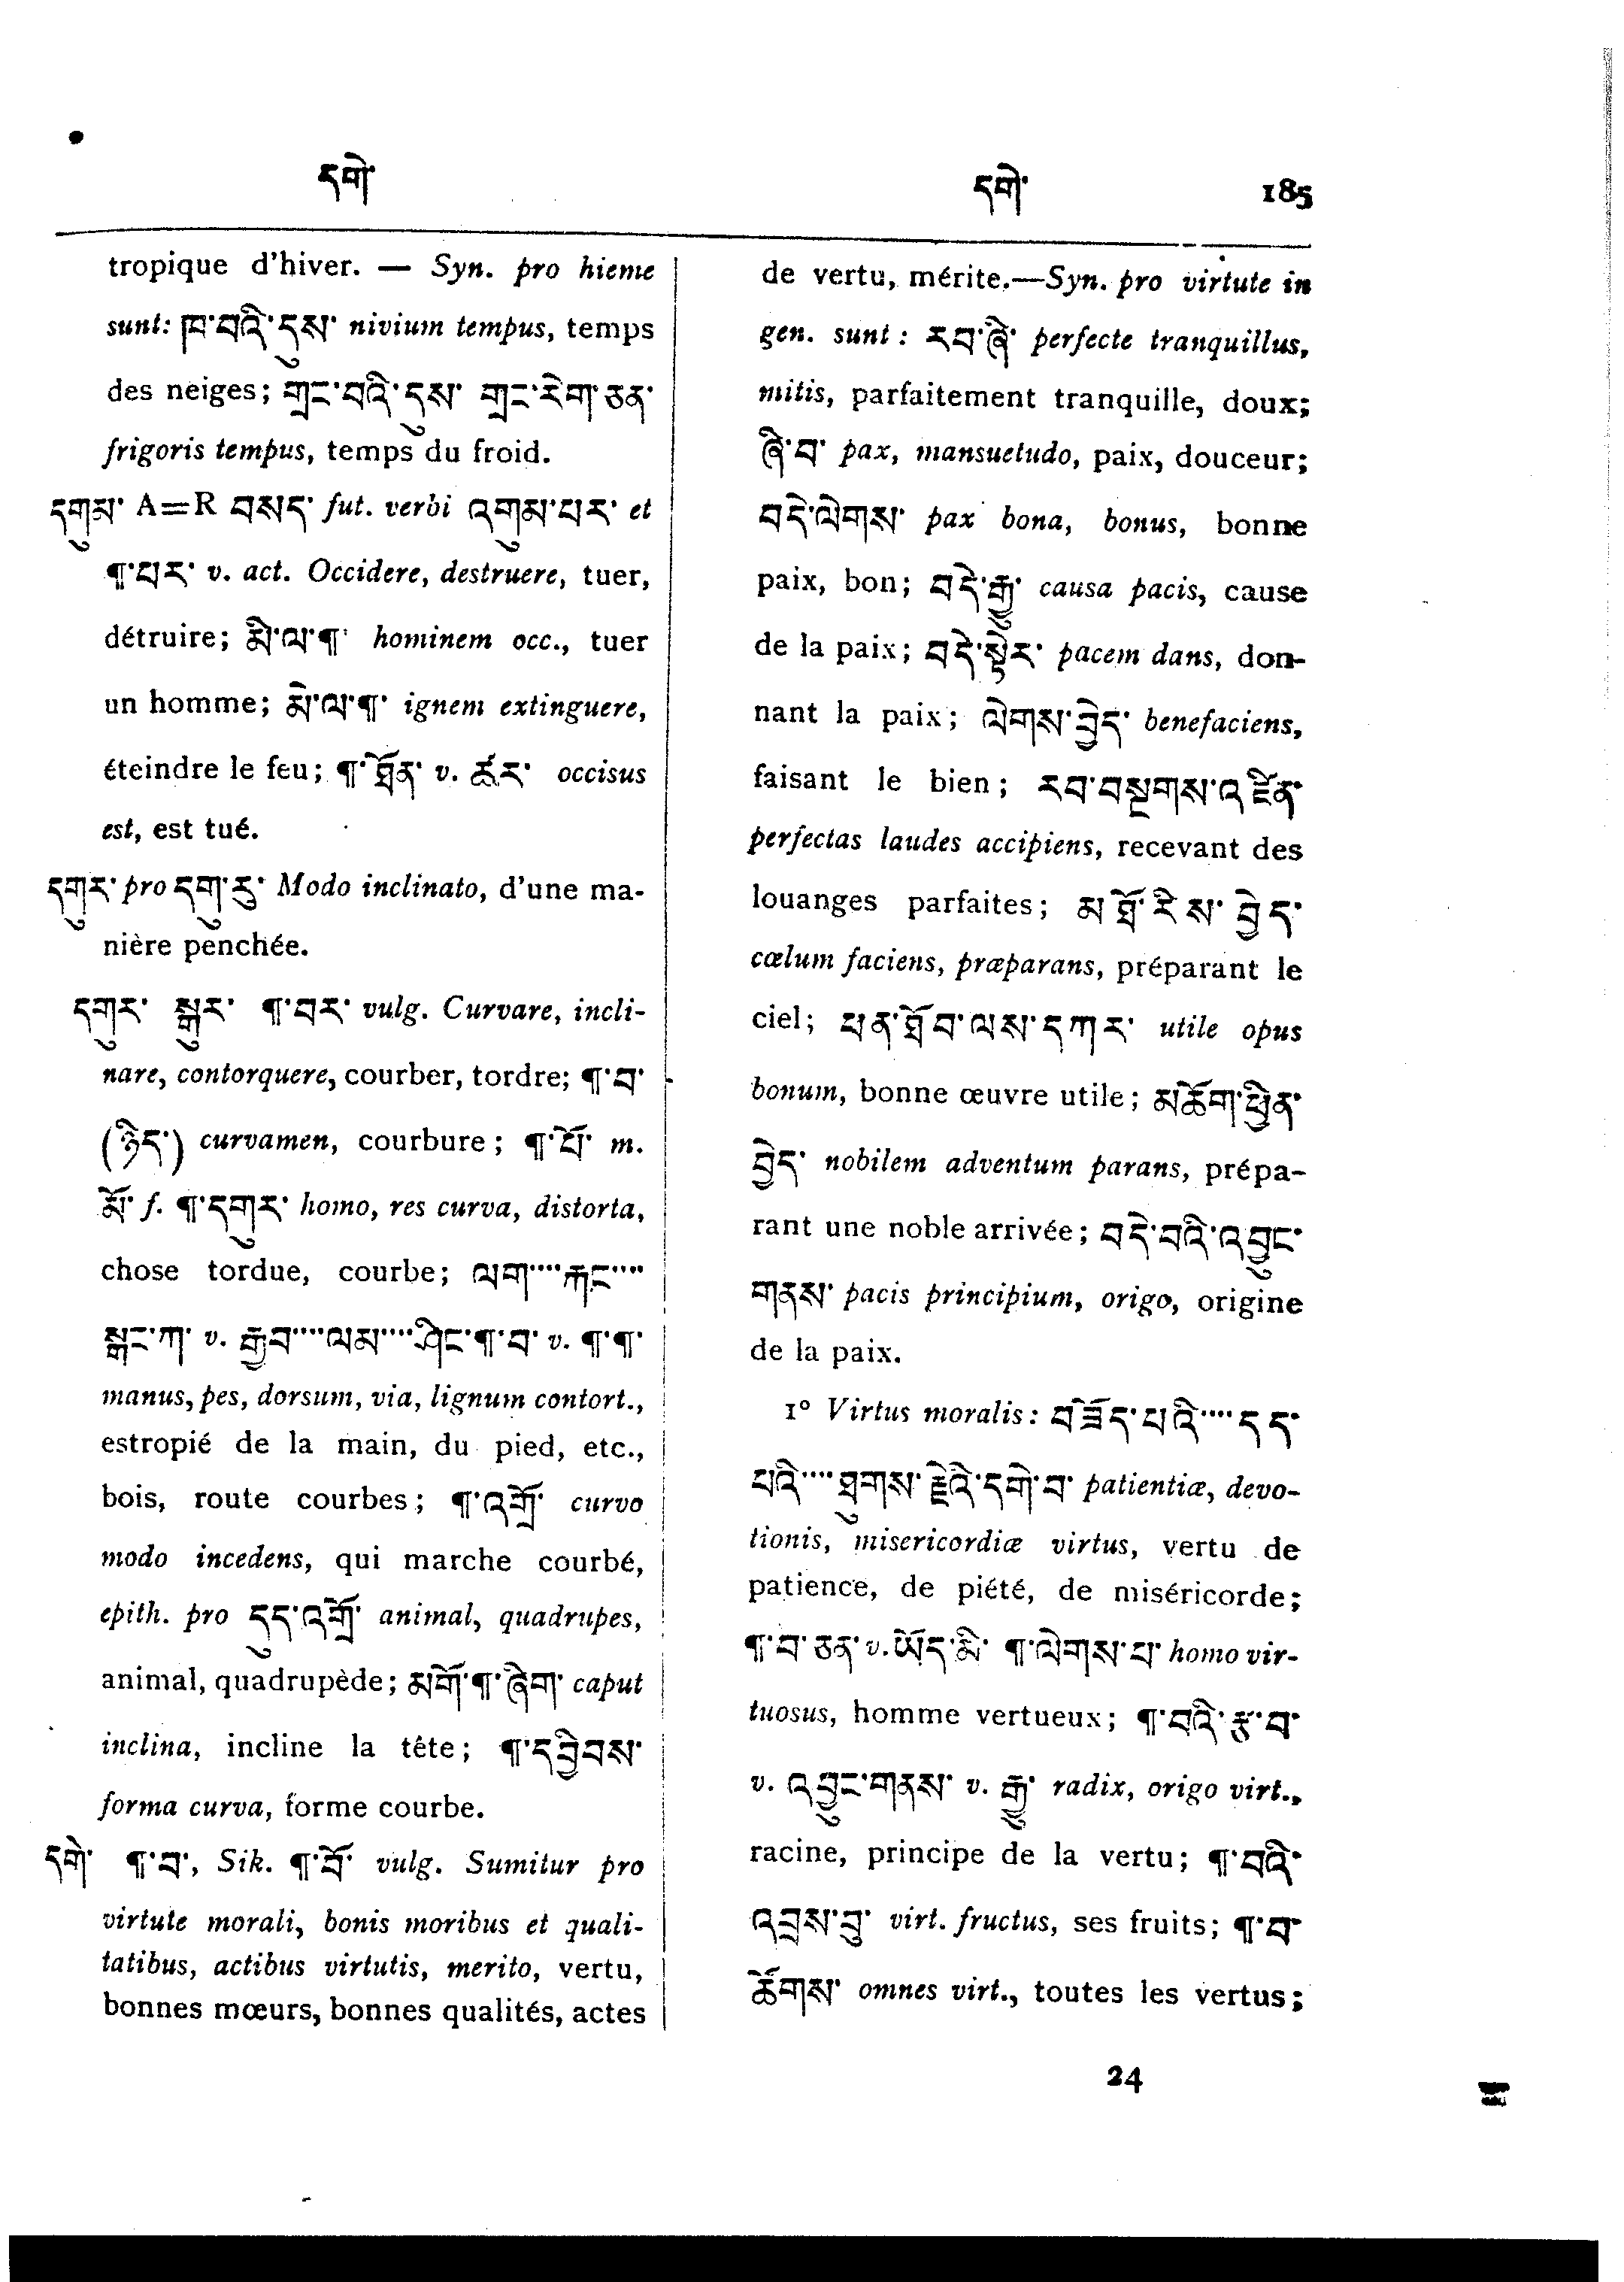 དགེ་
དགེ་ 185
tropique d'hiver. — Syn. pro hieme
sunt: ཁ་བའི་དུས་ nivium tempus, temps
des neiges; གྲང་བའི་དུས་ གྲང་རེག་ཅན་
frigoris tempus, temps du froid.
དགུམ་ A=R བསད་ fut. verbi འགུམ་པར་ et
¶་པར་ v. act. Occidere, destruere, tuer,
détruire; མི་ལ་¶་ hominem occ., tuer
un homme; མེ་ལ་¶་ ignem extinguere,
éteindre le feu; ¶་ཐོན་ v. ཚར་ occisus
est, est tué.
དགུར་ pro དགུ་རུ་ Modo inclinato, d'une ma-
nière penchée.
དགུར་ སྒུར་ ¶་བར་ vulg. Curvare, incli-
nare, contorquere, courber, tordre; ¶་བ་
(ཉིད་) curvamen, courbure; ¶་པོ་ m.
མོ་ f. ¶་དགུར་ homo, res curva, distorta,
chose tordue, courbe; ལག་···རྐང་···
སྒང་ཀ་ v. རྒྱབ་···ལམ་···ཤིང་¶་བ་ v. ¶་¶་
manus, pes, dorsum, via, lignum contort.,
estropié de la main, du pied, etc.,
bois, route courbes; ¶་འགྲོ་ curvo
modo incedens, qui marche courbé,
epith. pro དུད་འགྲོ་ animal, quadrupes,
animal, quadrupède; མགོ་¶་ཞིག་ caput
inclina, incline la tête; ¶་དབྱིབས་
forma curva, forme courbe.
དགེ་ ¶་བ་, Sik. ¶་བོ་ vulg. Sumitur pro
virtute morali, bonis moribus et quali-
tatibus, actibus virtutis, merito, vertu,
bonnes mœurs, bonnes qualités, actes
de vertu, mérite.—Syn. pro virtute in
gen. sunt: རབ་ཞི་ perfecte tranquillus,
mitis, parfaitement tranquille, doux;
ཞི་བ་ pax, mansuetudo, paix, douceur;
བདེ་ལེགས་ pax bona, bonus, bonne
paix, bon; བདེ་རྒྱུ་ causa pacis, cause
de la paix; བདེ་སྟེར་ pacem dans, don-
nant la paix; ལེགས་བྱེད་ benefaciens,
faisant le bien; རབ་བསྔགས་འཛིན་
perfectas laudes accipiens, recevant des
louanges parfaites; མཐོ་རིས་བྱེད་
cœlum faciens, præparans, préparant le
ciel; ཕན་ཐོབ་ལས་དཀར་ utile opus
bonum, bonne œuvre utile; མཆོག་ཕྱིན་
བྱེད་ nobilem adventum parans, prépa-
rant une noble arrivée; བདེ་བའི་འབྱུང་
གནས་ pacis principium, origo, origine
de la paix.
1° Virtus moralis: བཟོད་པའི་···དད་
པའི་···ཐུགས་རྗེའི་དགེ་བ་ patientiæ, devo-
tionis, misericordiæ virtus, vertu de
patience, de piété, de miséricorde;
¶་བ་ཅན་ v. ཡོད་མི་ ¶་ལེགས་པ་ homo vir-
tuosus, homme vertueux; ¶་བའི་རྩ་བ་
v. འབྱུང་གནས་ v. རྒྱུ་ radix, origo virt.,
racine, principe de la vertu; ¶་བའི་
འབྲས་བུ་ virt. fructus, ses fruits; ¶་བ་
ཚོགས་ omnes virt., toutes les vertus;
24